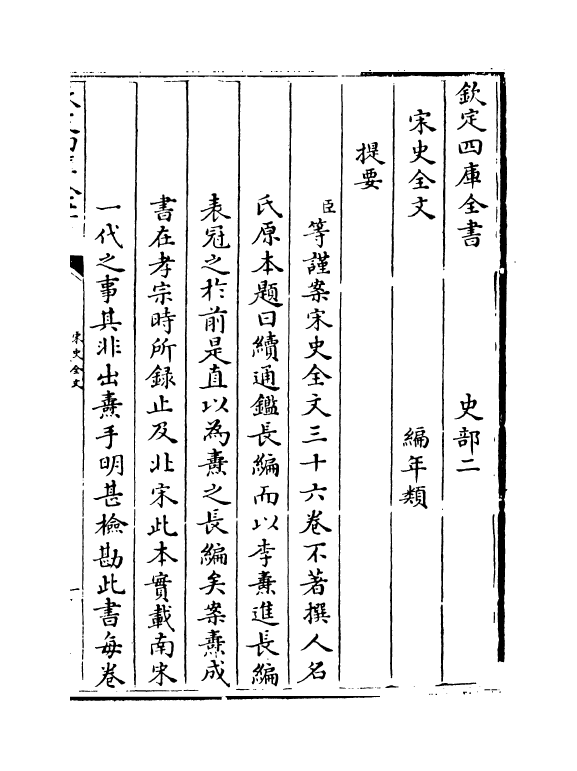 欽定四庫全書 史部二
宋史全文 編年類
提要
臣等謹案宋史全文三十六卷不著撰人名
氏原本題曰續通鑑長編而以李燾進長編
表冠之於前是直以為燾之長編矣案燾成
書在孝宗時所錄止及北宋此本實載南宋
一代之事其非出燾手明甚檢勘此書每卷
宋史全文
一